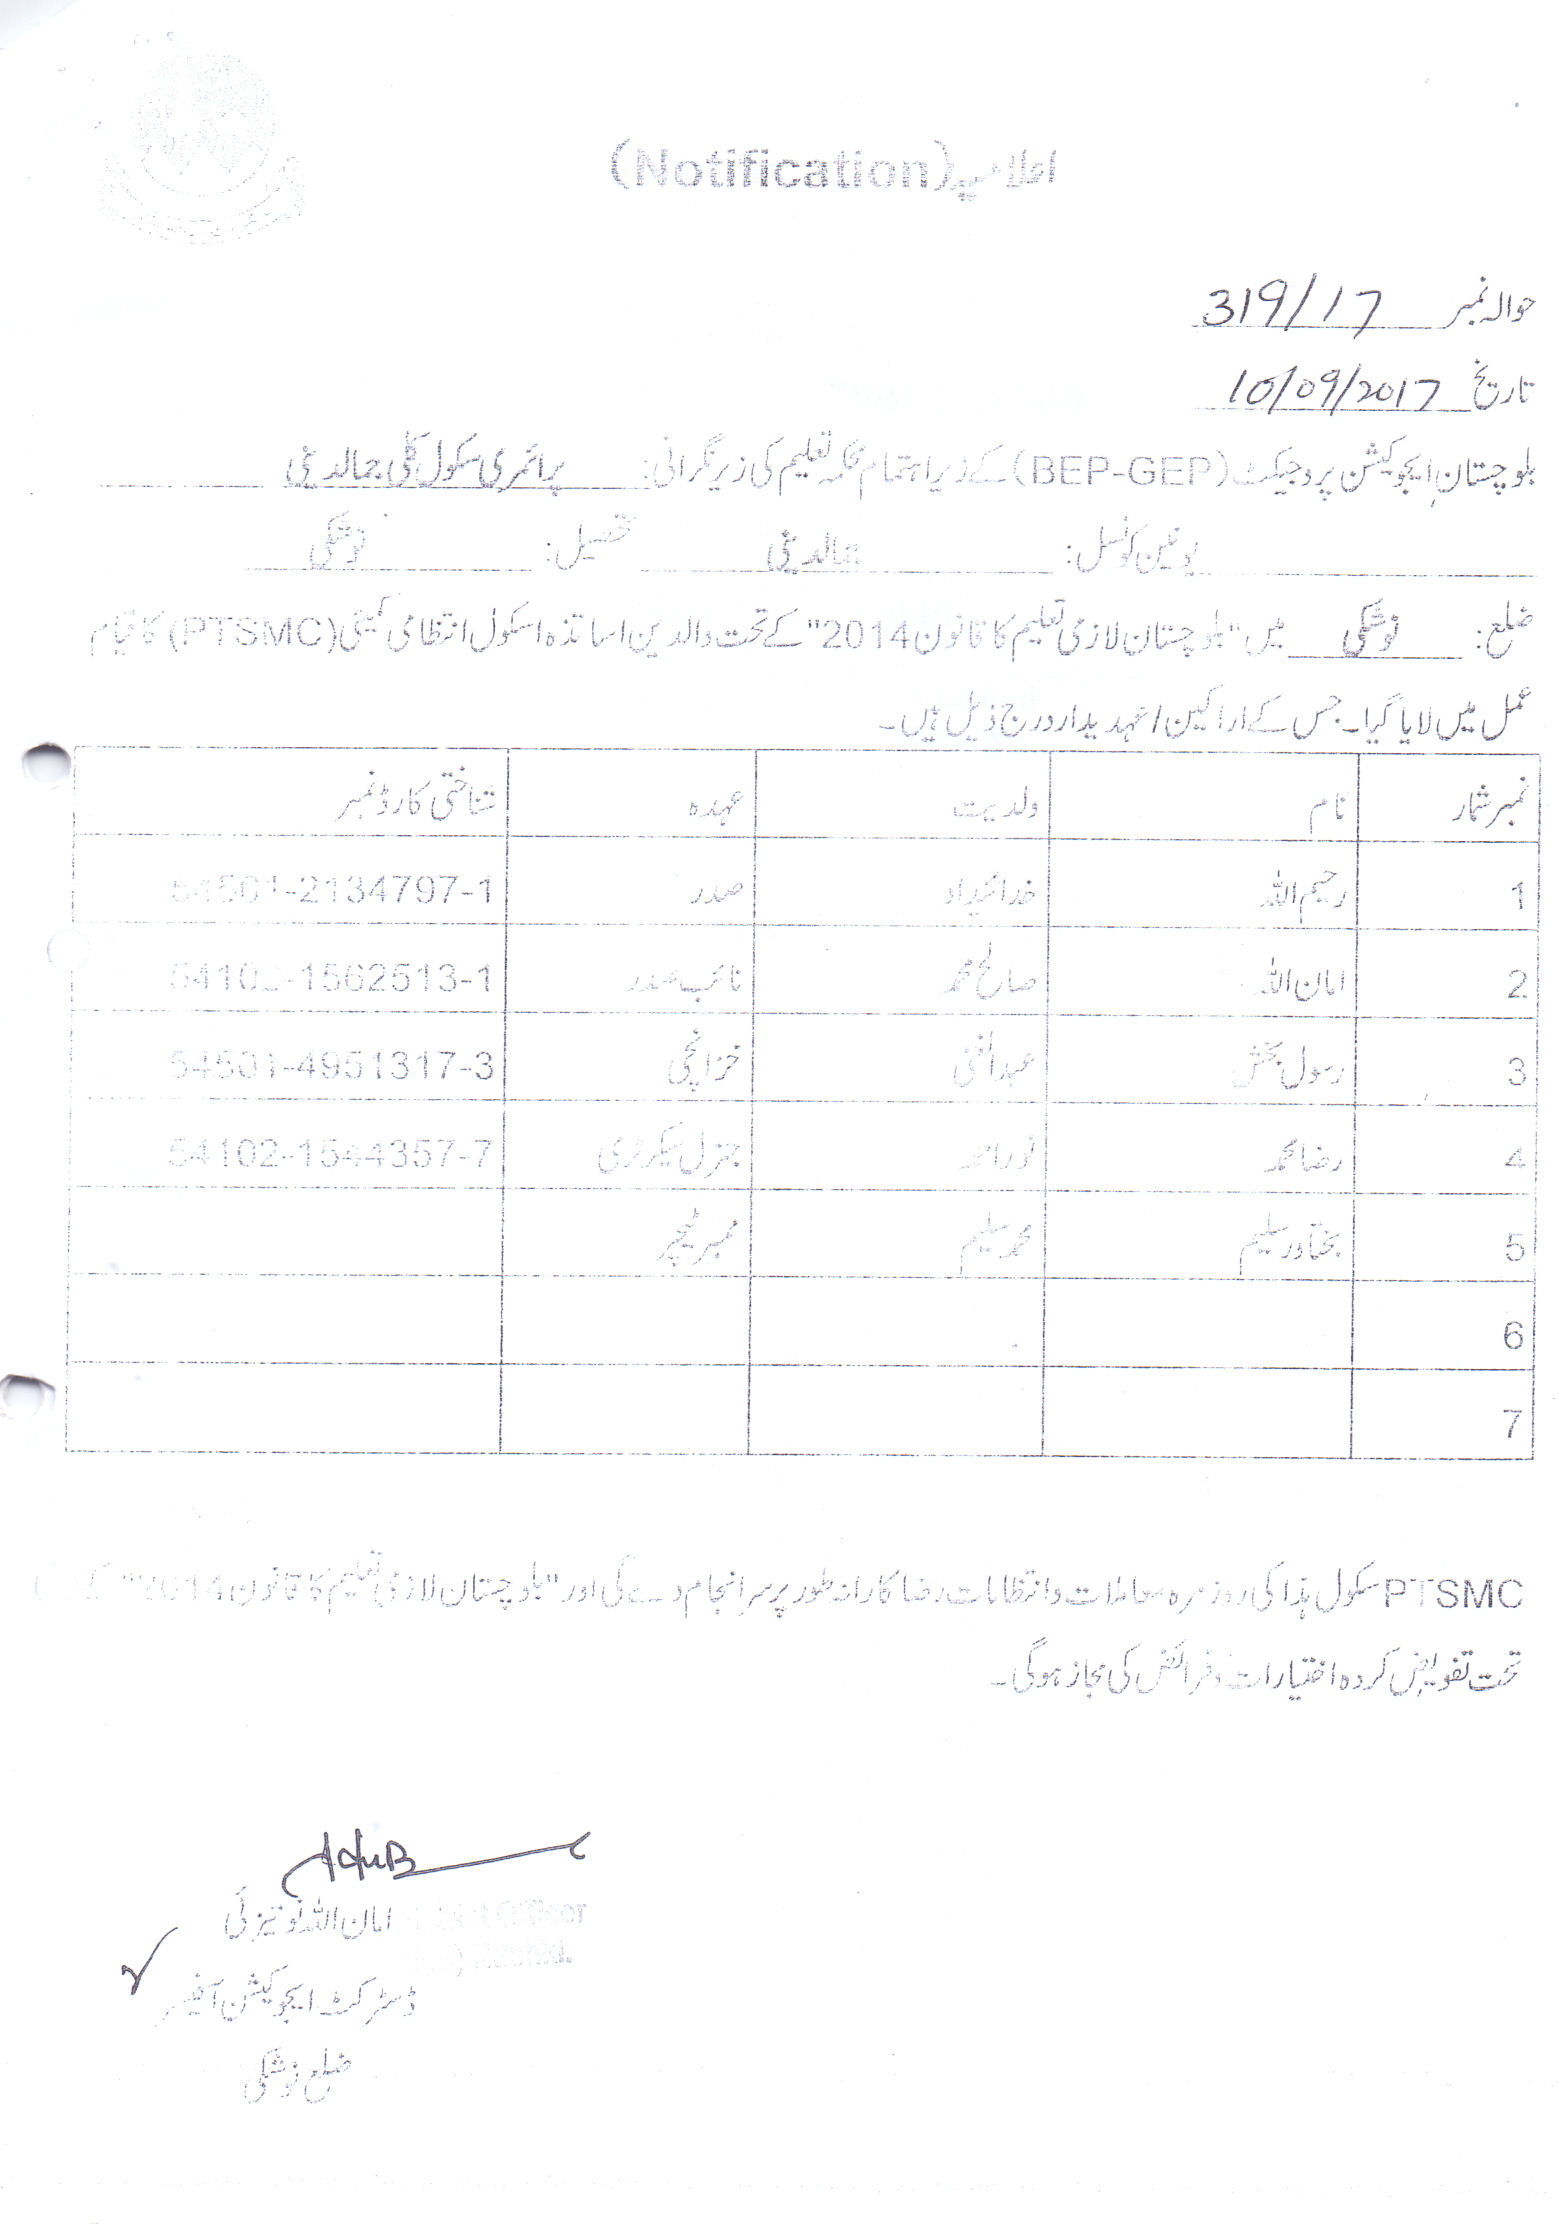 اعلامیہ (Notification)
حوالہ نمبر 319/17
تاریخ 10/09/2017
بلوچستان ایجوکیشن پروجیکٹ (BEP-GEP) کے زیر اہتمام محکمہ تعلیم کی زیر نگرانی: پرائمری سکول کلی جمالدینی
یونین کونسل: جمالدینی تحصیل: نوشکی
ضلع: نوشکی میں "بلوچستان لازمی تعلیم کا قانون 2014" کے تحت والدین اساتذہ اسکول انتظامی کمیٹی (PTSMC) کا قیام
عمل میں لایا گیا۔ جس کے اراکین / عہدیدار درج ذیل ہیں۔
نمبر شمار نام ولدیت عہدہ شناختی کارڈ نمبر
1 رحیم اللہ خدائیداد صدر 54501-2134797-1
2 امان اللہ صالح محمد نائب صدر 54102-1562513-1
3 رسول بخش عبدالغنی خزانچی 54501-4951317-3
4 رضا محمد نور احمد جنرل سیکرٹری 54102-1544357-7
5 بختاور سلیم محمد سلیم ممبر ٹیچر
6
7
PTSMC سکول ہذا کی روزمرہ معاملات و انتظامات رضا کارانہ طور پر سرانجام دے گی اور "بلوچستان لازمی تعلیم کا قانون 2014" کے
تحت تفویض کردہ اختیارات و فرائض کی مجاز ہوگی۔
امان اللہ نوتیزئی Officer
ڈسٹرکٹ ایجوکیشن آفیسر
ضلع نوشکی